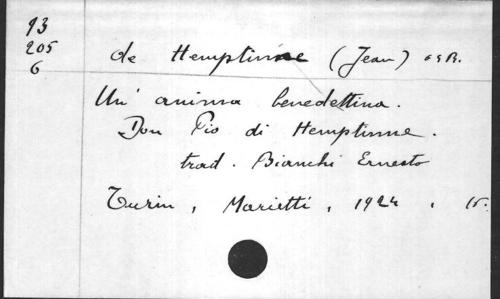 13
205
6
de Hemptinne (Jean) OSB.
Un' anima benedettina.
Don Pio di Hemptinne.
trad. Bianchi Ernesto
Turin, Marietti, 1924,